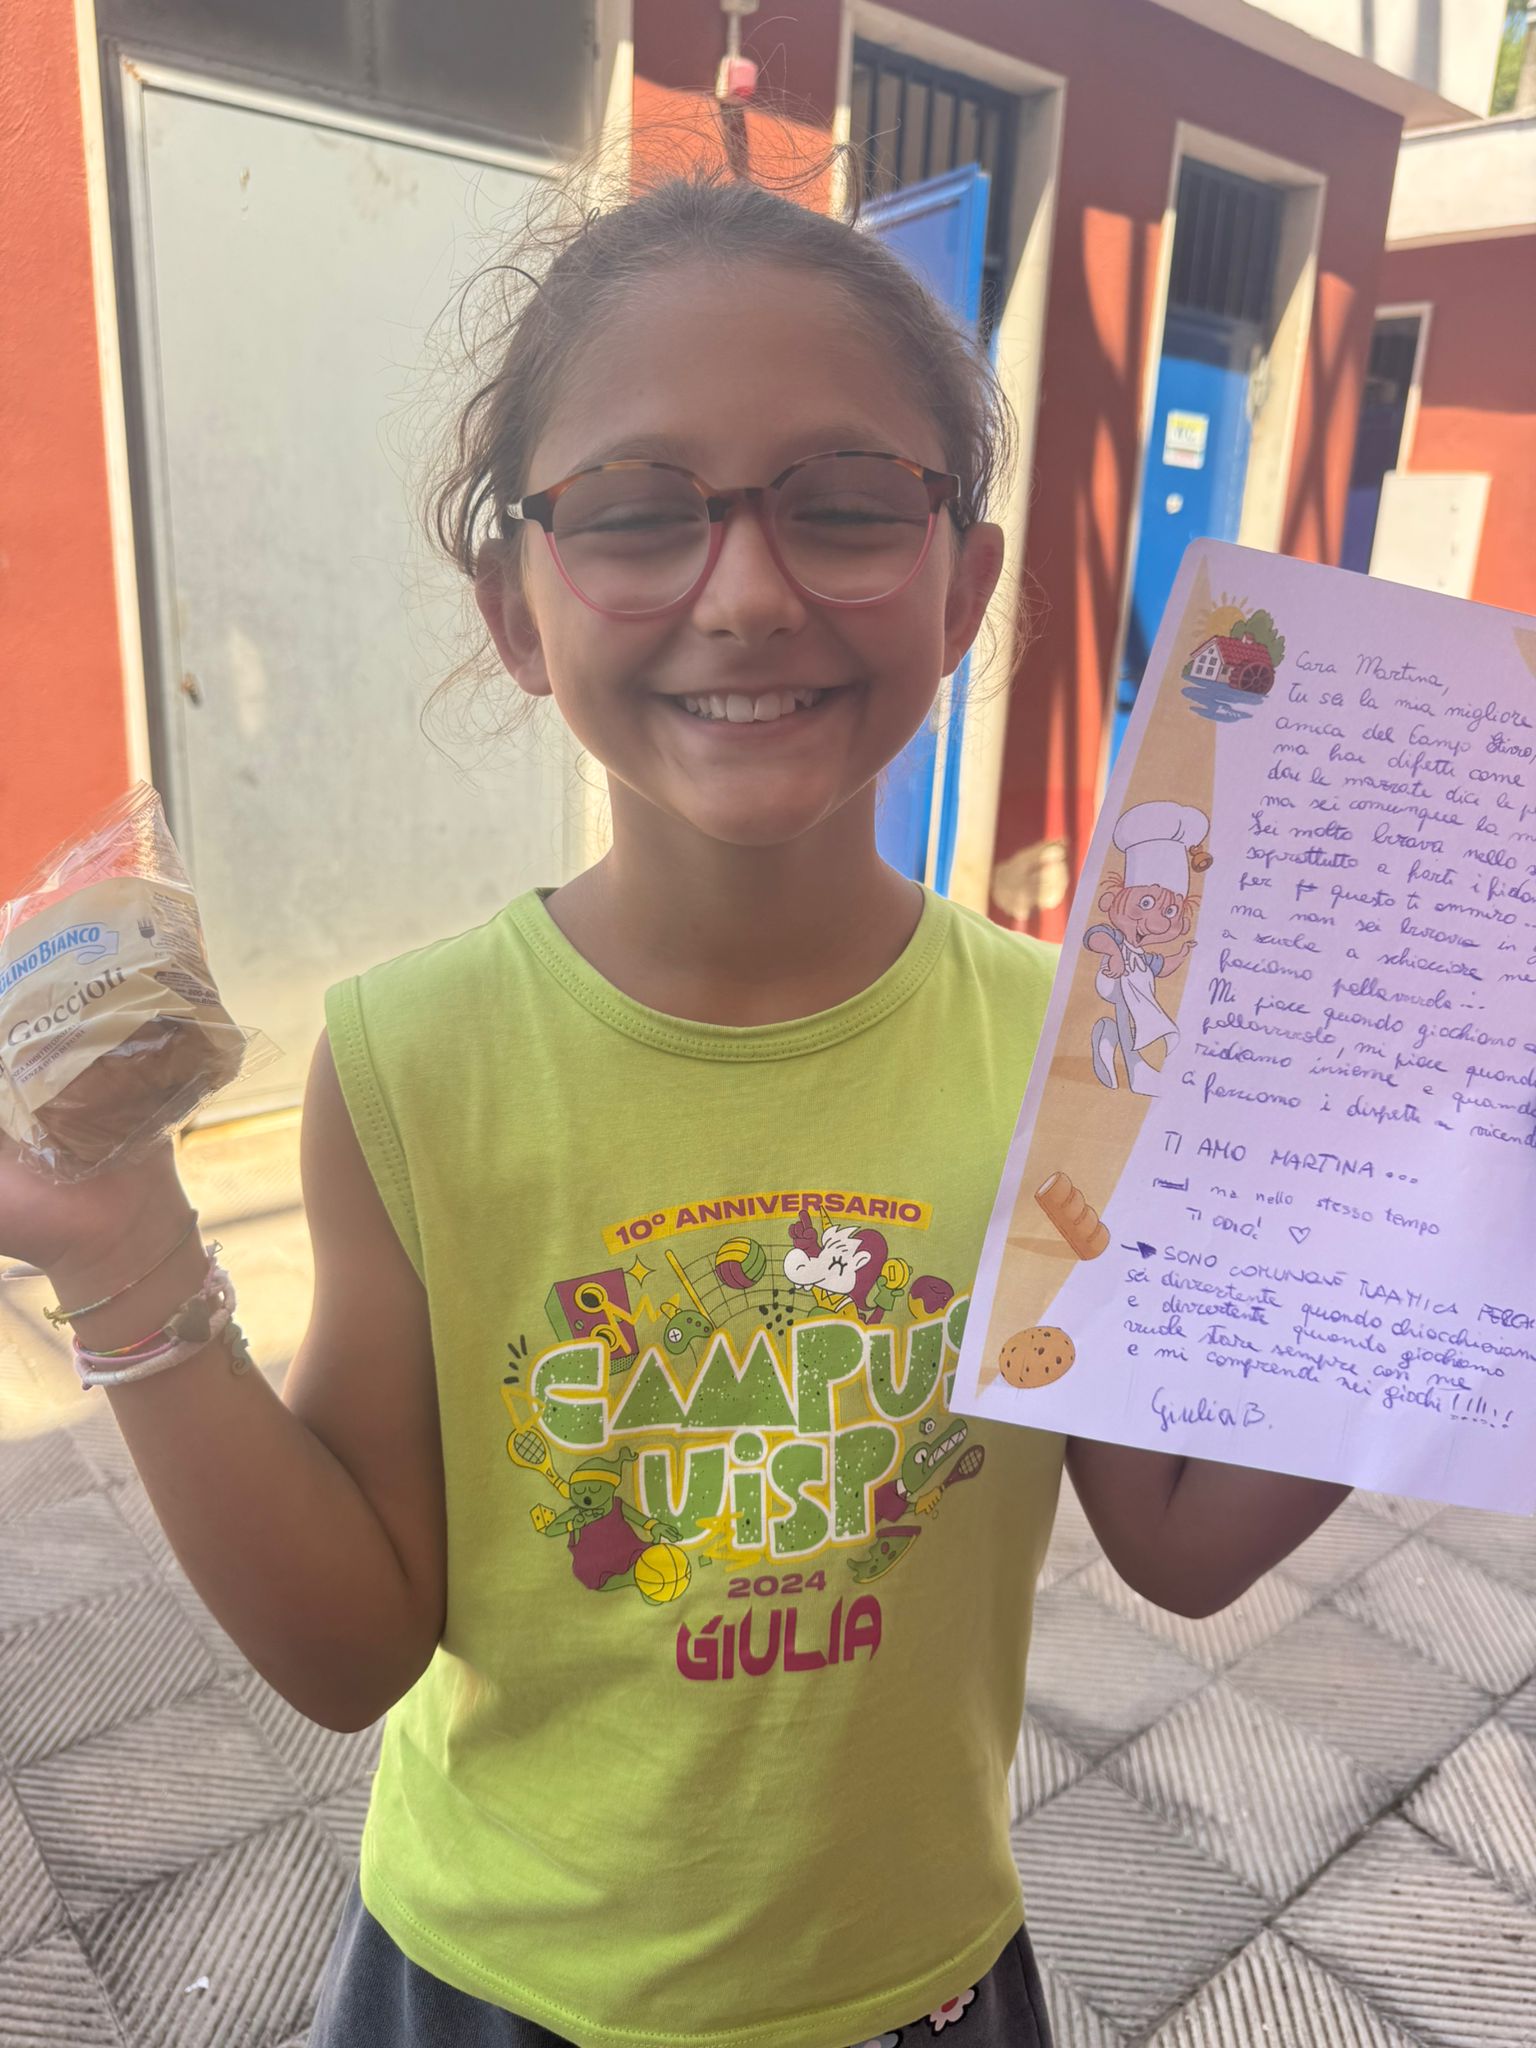 MULINO BIANCO
Goccioli
10º ANNIVERSARIO
CAMPUS
UISP
2024
GIULIA
Cara Martina,
tu sei la mia migliore
amica del Camp Estivo,
ma hai difetti come
dai le mazzate dici le p
ma sei comunque la m
Sei molto brava nello s
soprattutto a farti i fidan
per questo ti ammiro ...
ma non sei brava in g
a scuola a schiacciare me
facciamo pallavvolo ...
Mi piace quando giochiamo a
pallavvolo, mi piace quand
ridiamo insieme e quando
ci facciamo i dispetti a vicend
TI AMO MARTINA ...
ma nello stesso tempo
TI ODIO! ♡
→ SONO COMUNQUE TUA AMICA PERCH
sei divertente quando chiacchieriam
e divertente quando giochiamo
vuole stare sempre con me
e mi comprendi nei giochi !!!!!
Giulia B.